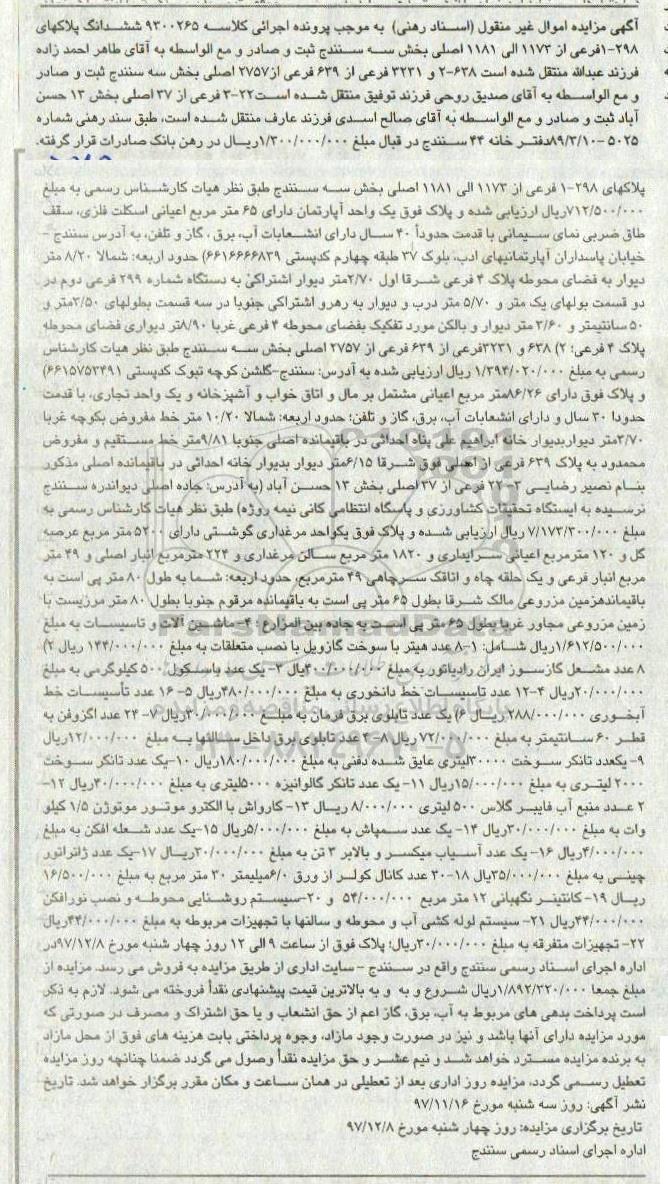 آگهی مزایده اموال غیر منقول (اسناد رهنی) به موجب پرونده اجرائی کلاسه ۹۳۰۰۲۶۵ ششدانگ پلاکهای
۱-۲۹۸فرعی از ۱۱۷۳ الی ۱۱۸۱ اصلی بخش سه سنندج ثبت و صادر و مع الواسطه به آقای طاهر احمد زاده
فرزند عبدالله منتقل شده است ۶۳۸-۲ و ۳۲۳۱ فرعی از ۶۳۹ فرعی از۲۷۵۷ اصلی بخش سه سنندج ثبت و صادر
و مع الواسطه به آقای صدیق روحی فرزند توفیق منتقل شده است۲۲-۳ فرعی از ۳۷ اصلی بخش ۱۳ حسن
آباد ثبت و صادر و مع الواسطه به آقای صالح اسدی فرزند عارف منتقل شده است، طبق سند رهنی شماره
۵۰۲۵ -۸۹/۳/۱۰دفتر خانه ۴۴ سنندج در قبال مبلغ ۱/۳۰۰/۰۰۰/۰۰۰ریال در رهن بانک صادرات قرار گرفته.
پلاکهای ۲۹۸-۱ فرعی از ۱۱۷۳ الی ۱۱۸۱ اصلی بخش سه سنندج طبق نظر هیات کارشناس رسمی به مبلغ
۷۱۲/۵۰۰/۰۰۰ریال ارزیابی شده و پلاک فوق یک واحد آپارتمان دارای ۶۵ متر مربع اعیانی اسکلت فلزی، سقف
طاق ضربی نمای سیمانی با قدمت حدوداً ۴۰ سال دارای انشعابات آب، برق، گاز و تلفن، به آدرس سنندج -
خیابان پاسداران آپارتمانهای ادب، بلوک ۳۷ طبقه چهارم کدپستی ۶۶۱۶۶۶۶۸۳۹) حدود اربعه: شمالا ۸/۲۰ متر
دیوار به فضای محوطه پلاک ۴ فرعی شرقا اول ۲/۷۰متر دیوار اشتراکی به دستگاه شماره ۲۹۹ فرعی دوم در
دو قسمت بولهای یک متر و ۵/۷۰ متر درب و دیوار به رهرو اشتراکی جنوبا در سه قسمت بطولهای ۳/۵۰متر و
۵۰ سانتیمتر و ۳/۶۰ متر دیوار و بالکن مورد تفکیک بفضای محوطه ۴ فرعی غربا ۸/۹۰تر دیواری فضای محوطه
پلاک ۴ فرعی؛ ۲) ۶۳۸ و ۳۲۳۱فرعی از ۶۳۹ فرعی از ۲۷۵۷ اصلی بخش سه سنندج طبق نظر هیات کارشناس
رسمی به مبلغ ۱/۳۹۴/۰۲۰/۰۰۰ ریال ارزیابی شده به آدرس: سنندج-گلشن کوچه تیوک کدپستی ۶۶۱۵۷۵۳۴۹۱)
و پلاک فوق دارای ۸۶/۲۶متر مربع اعیانی مشتمل بر مال و اتاق خواب و آشپزخانه و یک واحد تجاری، با قدمت
حدودا ۳۰ سال و دارای انشعابات آب، برق، گاز و تلفن؛ حدود اربعه: شمالا ۱۰/۲۰ متر خط مفروض بکوچه غربا
۳/۷۰متر دیواربدیوار خانه ابراهیم علی پناه احداثی در باقیمانده اصلی جنوبا ۹/۸۱متر خط مستقیم و مفروض
محمدود به پلاک ۶۳۹ فرعی از اصلی فوق شرقا ۶/۱۵متر دیوار بدیوار خانه احداثی در باقیمانده اصلی مذکور
بنام نصیر رضایی ۳-۲۲ فرعی از ۳۷ اصلی بخش ۱۳ حسن آباد (به آدرس: جاده اصلی دیواندره سنندج
نرسیده به ایستگاه تحقیقات کشاورزی و پاسگاه انتظامی کانی نیمه روژه) طبق نظر هیات کارشناس رسمی به
مبلغ ۷/۱۷۳/۳۰۰/۰۰۰ ریال ارزیابی شده و پلاک فوق یکواحد مرغداری گوشتی دارای ۵۲۰۰ متر مربع عرصه
گل و ۱۲۰ مترمربع اعیانی سرایداری و ۱۸۲۰ متر مربع سالن مرغداری و ۲۲۴ مترمربع انبار اصلی و ۴۹ متر
مربع انبار فرعی و یک حلقه چاه و اتاقک سرچاهی ۴۹ مترمربع، حدود اربعه: شما به طول ۸۰ متر پی است به
باقیماندهزمین مزروعی مالک شرقا بطول ۶۵ متر پی است به باقیمانده مرقوم جنوبا بطول ۸۰ متر مرزیست با
زمین مزروعی مجاور غربا بطول ۶۵ متر پی است به جاده بین المزارع ؛ ۴- ماشین آلات و تاسیسات به مبلغ
۱/۶۱۲/۵۰۰/۰۰۰ریال شامل: ۱-۸ عدد هیتر با سوخت گازویل با نصب متعلقات به مبلغ ۱۴۴/۰۰۰/۰۰۰ ریال ۲)
۸ عدد مشعل گازسوز ایران رادیاتور به مبلغ ۴۰/۰۰۰/۰۰۰یال ۳- یک عدد باسکول ۵۰۰ کیلوگرمی به مبلغ
۲۰/۰۰۰/۰۰۰ریال ۴-۱۲ عدد تاسیسات خط دانخوری به مبلغ ۴۸۰/۰۰۰/۰۰۰ریال ۵- ۱۶ عدد تأسیسات خط
آبخوری ۲۸۸/۰۰۰/۰۰۰ ریال ۶) یک عدد تابلوی برق فرمان به مبلغ ۳۰/۰۰۰/۰۰۰ریال ۷- ۲۴ عدد اگزوفن به
قطر ۶۰ سانتیمتر به مبلغ ۷۲/۰۰۰/۰۰۰ ریال ۸-۲ عدد تابلوی برق داخل سالنها به مبلغ ۱۲/۰۰۰/۰۰۰ریال
۹- یکعدد تانکر سوخت ۳۰۰۰۰لیتری عایق شده دفنی به مبلغ ۱۸۰/۰۰۰/۰۰۰ریال ۱۰-یک عدد تانکر سوخت
۲۰۰۰ لیتری به مبلغ ۱۵/۰۰۰/۰۰۰ریال ۱۱- یک عدد تانکر گالوانیزه ۵۰۰۰لیتری به مبلغ ۳۰/۰۰۰/۰۰۰ریال ۱۲-
۲ عدد منبع آب فایبر گلاس ۵۰۰ لیتری ۸/۰۰۰/۰۰۰ ریال ۱۳- کارواش با الکترو موتور موتوژن ۱/۵ کیلو
وات به مبلغ ۳۰/۰۰۰/۰۰۰ریال ۱۴- یک عدد سمپاش به مبلغ ۵/۰۰۰/۰۰۰ریال ۱۵-یک عدد شعله افکن به مبلغ
۴/۰۰۰/۰۰۰ریال ۱۶- یک عدد آسیاب میکسر و بالابر ۳ تن به مبلغ ۳۰/۰۰۰/۰۰۰ریال ۱۷-یک عدد ژانراتور
چینی به مبلغ ۳۵/۰۰۰/۰۰۰یال ۱۸-۳۰ عدد کانال کولر از ورق ۰/۶میلیمتر ۳۰ متر مربع به مبلغ ۱۶/۵۰۰/۰۰۰
ریال ۱۹- کانتینر نگهبانی ۱۲ متر مربع ۵۴/۰۰۰/۰۰۰ و ۲۰-سیستم روشنایی محوطه و نصب نورافکن
۴۴/۰۰۰/۰۰۰ریال ۲۱- سیستم لوله کشی آب و محوطه و سالنها با تجهیزات مربوطه به مبلغ ۴۴/۰۰۰/۰۰۰ریال
۲۲- تجهیزات متفرقه به مبلغ ۳۰/۰۰۰/۰۰۰ریال؛ پلاک فوق از ساعت ۹ الی ۱۲ روز چهار شنبه مورخ ۹۷/۱۲/۸در
اداره اجرای اسناد رسمی سنندج واقع در سنندج - سایت اداری از طریق مزایده به فروش می رسد. مزایده از
مبلغ جمعا ۱/۸۹۲/۳۲۰/۰۰۰ریال شروع و به و به بالاترین قیمت پیشنهادی نقداً فروخته می شود. لازم به ذکر
است پرداخت بدهی های مربوط به آب، برق، گاز اعم از حق انشعاب و یا حق اشتراک و مصرف در صورتی که
مورد مزایده دارای آنها باشد و نیز در صورت وجود مازاد، وجوه پرداختی بابت هزینه های فوق از محل مازاد
به برنده مزایده مسترد خواهد شد و نیم عشر و حق مزایده نقداً وصول می گردد ضمنا چنانچه روز مزایده
تعطیل رسمی گردد، مزایده روز اداری بعد از تعطیلی در همان ساعت و مکان مقرر برگزار خواهد شد. تاریخ
نشر آگهی: روز سه شنبه مورخ ۹۷/۱۱/۱۶
تاریخ برگزاری مزایده: روز چهار شنبه مورخ ۹۷/۱۲/۸
اداره اجرای اسناد رسمی سنندج